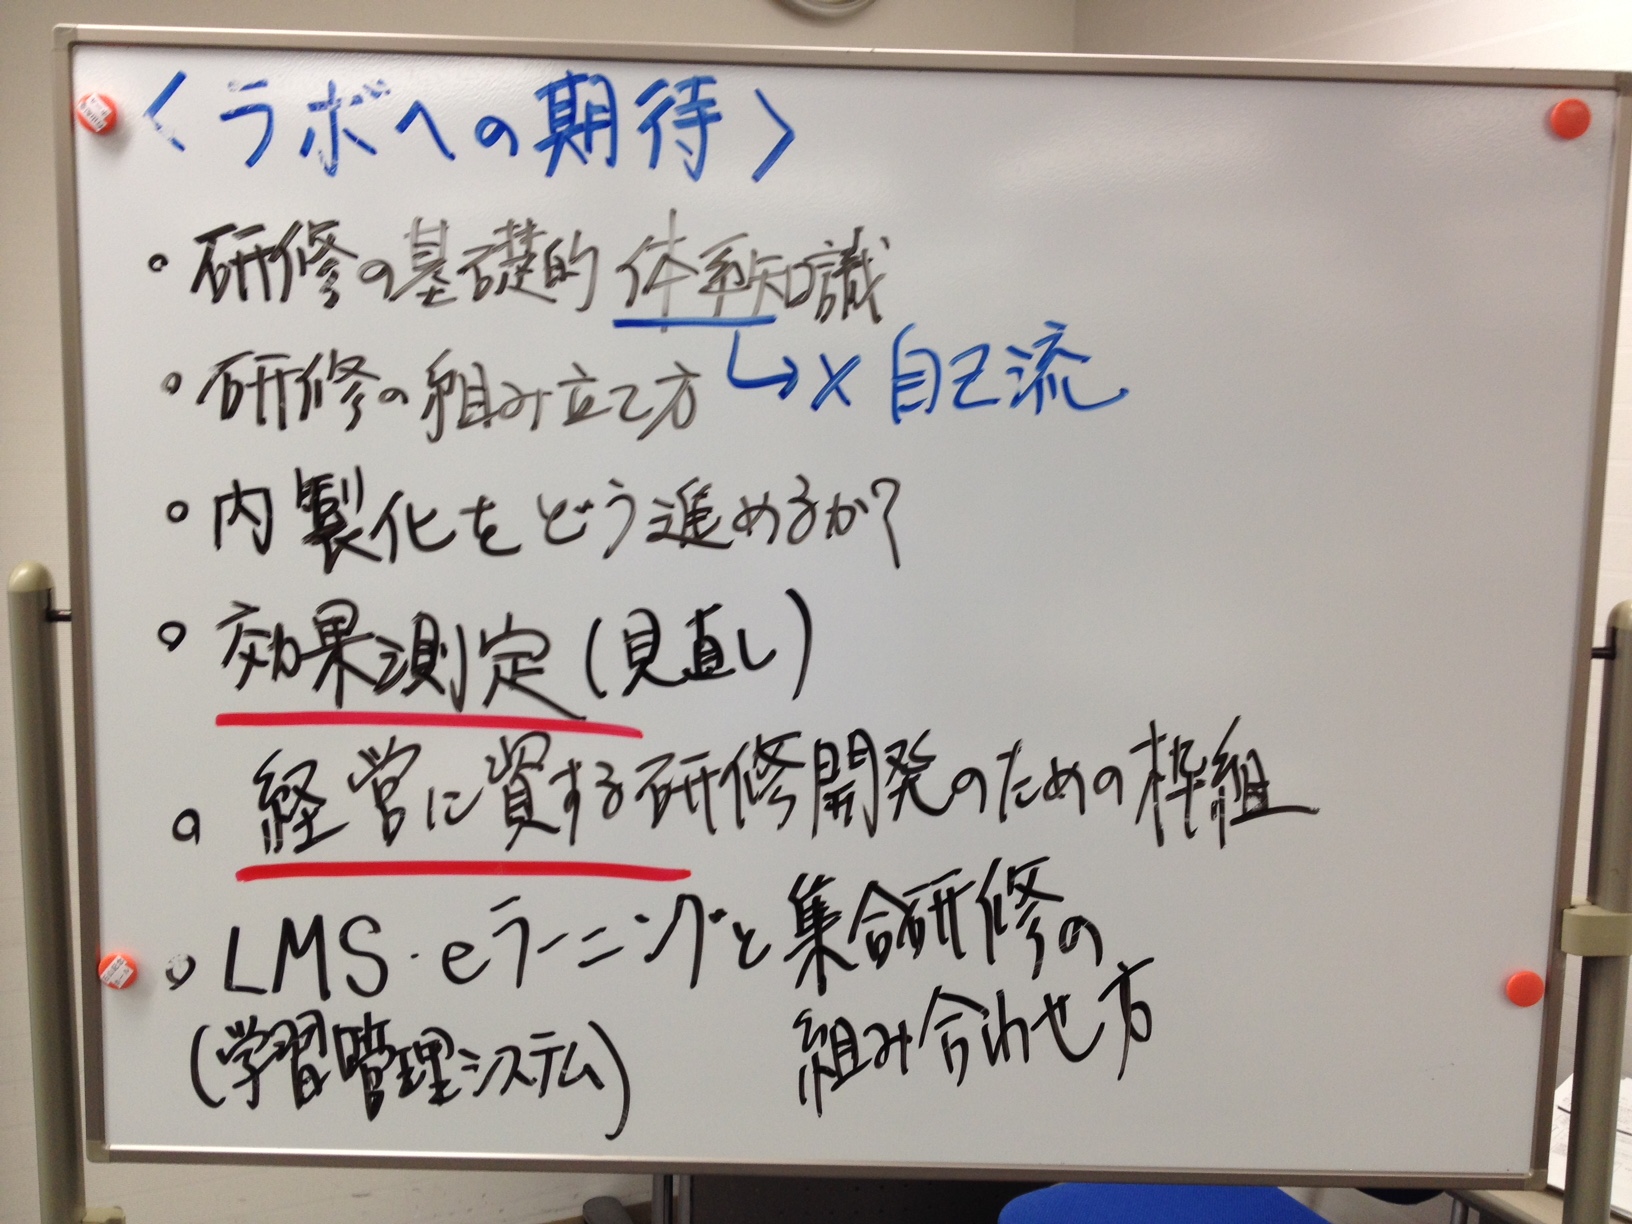 〈ラボへの期待〉
・研修の基礎的体系知識
↳ × 自己流
・研修の組み立て方
・内製化をどう進めるか?
・効果測定(見直し)
・経営に資する研修開発のための枠組
・LMS・eラーニングと集合研修の
(学習管理システム) 組み合わせ方